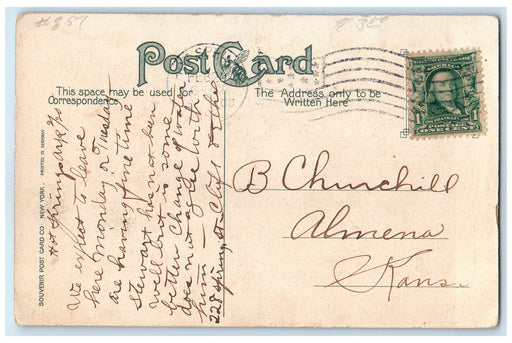 Post Card
This space may be used for
Correspondence
The Address only to be
Written Here
SOUVENIR POST CARD CO NEW YORK,
PRINTED IN GERMANY
Hot Springs Ark
We expect to leave
here monday or Tuesday
are having fine time
Stewart has not been
well but is some
better change of water
does not agree with
him — Cliff &
228 Spring st
B Churchill
Almena
Kans.
1
ONE CENT